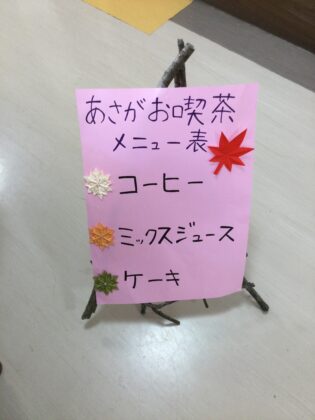 あさがお喫茶
メニュー表
コーヒー
ミックスジュース
ケーキ